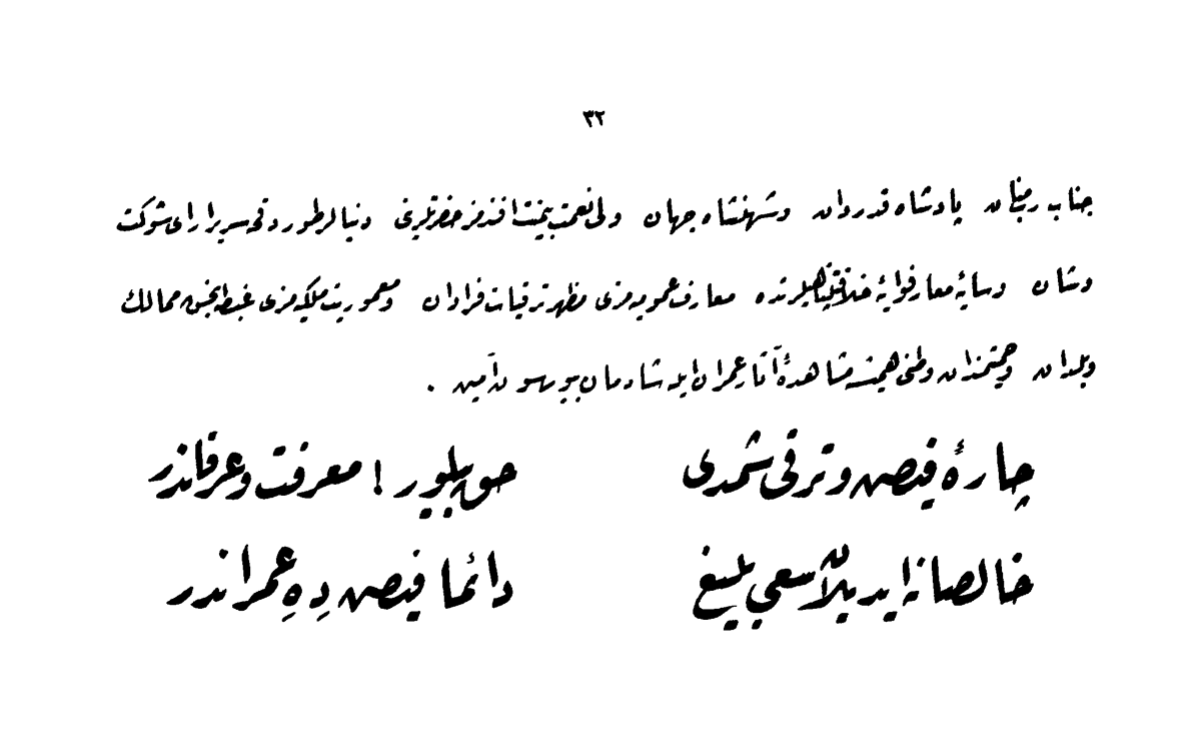 ٣٢
جناب رب منان پادشاه قدردان وشهنشاه جهان ولی نعمت بیمنت افندمز حضرتلرینی دنیالر طوردقجه سریر ارای شوکت
وشان وسایهٔ معارفوایهٔ خلافتپناهیلرنده معارف عمومیه‌مزی مظهر ترقیات فراوان ومعموریت ملکیه‌مزی غبطه‌بخش ممالک
وبلدان وحمیتمندان وطنی همیشه مشاهدهٔ آثار عمران ایله شادمان بیورسون آمین .
چارهٔ فیض وترقی شمدی
حق بیلور ! معرفت وعرفاندر
خالصانه ایدیلان سعی بلیغ
دائما فیض دهِ عمراندر